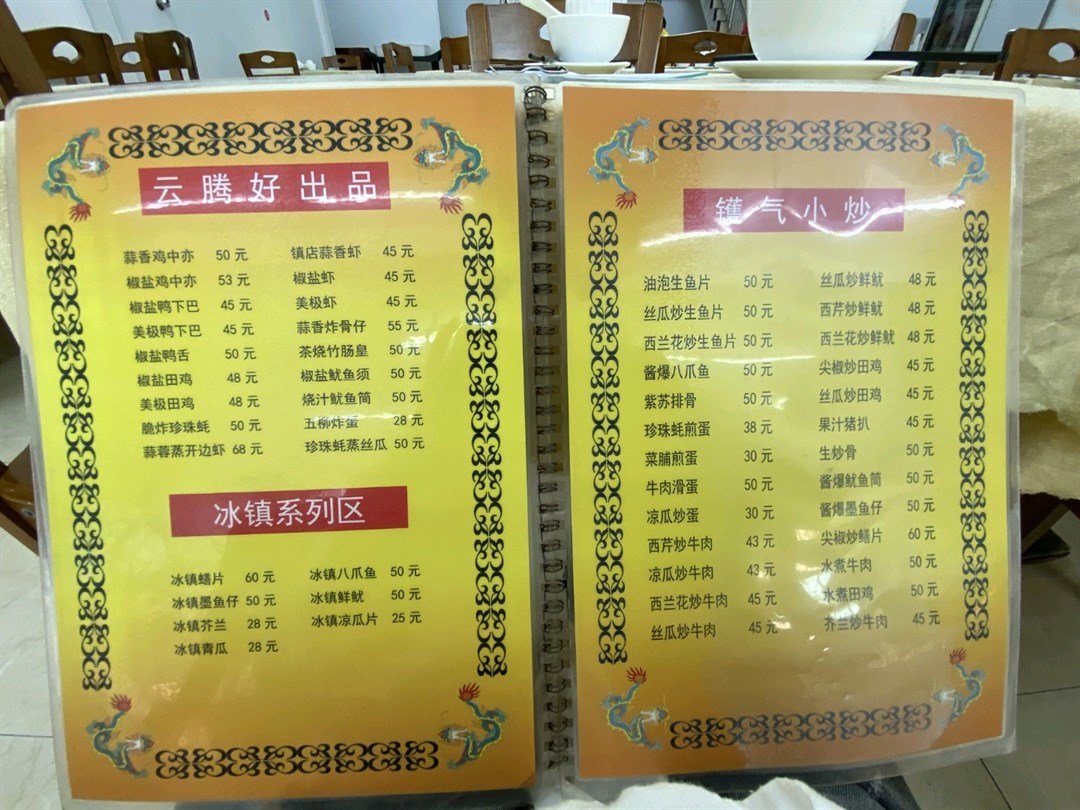 云腾好出品
蒜香鸡中亦 50 元 镇店蒜香虾 45 元
椒盐鸡中亦 53 元 椒盐虾 45 元
椒盐鸭下巴 45 元 美极虾 45 元
美极鸭下巴 45 元 蒜香炸骨仔 55 元
椒盐鸭舌 50 元 茶烧竹肠皇 50 元
椒盐田鸡 48 元 椒盐鱿鱼须 50 元
美极田鸡 48 元 烧汁鱿鱼筒 50 元
脆炸珍珠蚝 50 元 五柳炸蛋 28 元
蒜蓉蒸开边虾 68 元 珍珠蚝蒸丝瓜 50 元
冰镇系列区
冰镇鳝片 60 元 冰镇八爪鱼 50 元
冰镇墨鱼仔 50 元 冰镇鲜鱿 50 元
冰镇芥兰 28 元 冰镇凉瓜片 25 元
冰镇青瓜 28 元
镬气小炒
油泡生鱼片 50 元 丝瓜炒鲜鱿 48 元
丝瓜炒生鱼片 50 元 西芹炒鲜鱿 48 元
西兰花炒生鱼片 50 元 西兰花炒鲜鱿 48 元
酱爆八爪鱼 50 元 尖椒炒田鸡 45 元
紫苏排骨 50 元 丝瓜炒田鸡 45 元
珍珠蚝煎蛋 38 元 果汁猪扒 45 元
菜脯煎蛋 30 元 生炒骨 50 元
牛肉滑蛋 50 元 酱爆鱿鱼筒 50 元
凉瓜炒蛋 30 元 酱爆墨鱼仔 50 元
西芹炒牛肉 43 元 尖椒炒鳝片 60 元
凉瓜炒牛肉 43 元 水煮牛肉 50 元
西兰花炒牛肉 45 元 水煮田鸡 50 元
丝瓜炒牛肉 45 元 芥兰炒牛肉 45 元